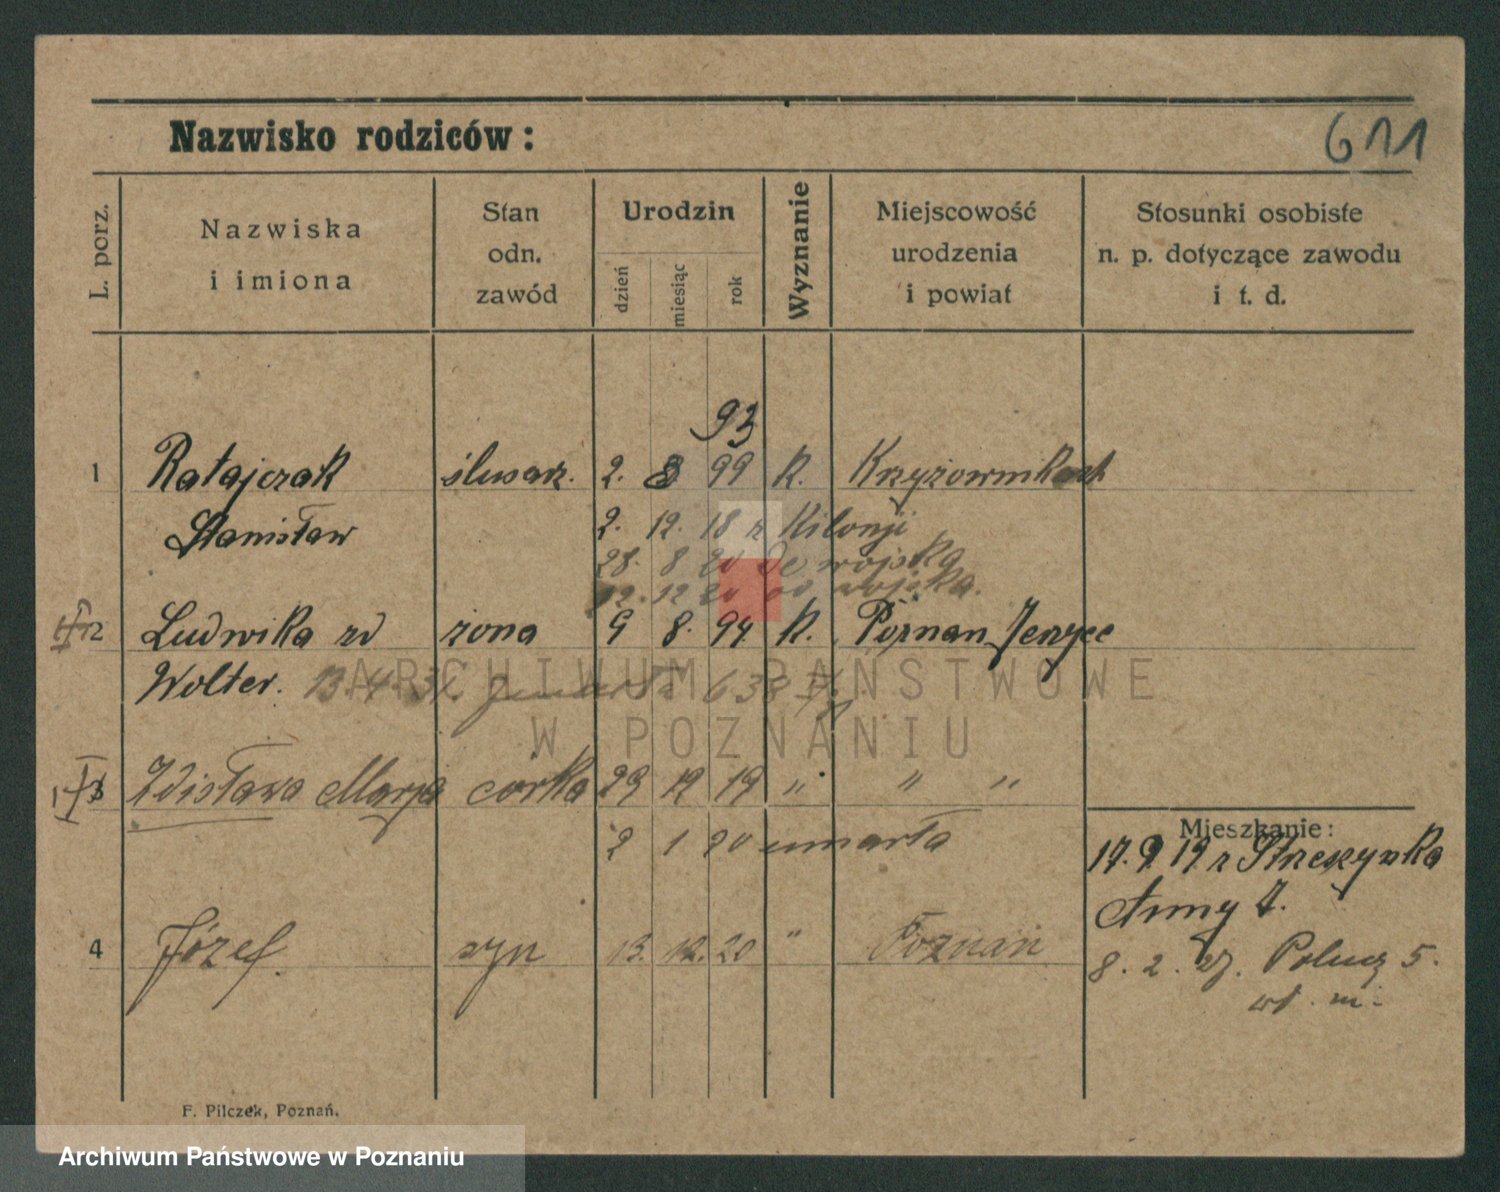 Nazwisko rodziców :
611
L. porz.
Nazwiska
i imiona
Stan
odn.
zawód
Urodzin
dzień
miesiąc
rok
Wyznanie
Miejscowość
urodzenia
i powiat
Stosunki osobiste
n. p. dotyczące zawodu
i t. d.
93
1 Ratajczak ślusarz. 2. 8 99 K.
Stanisław 2. 12. 18 z Kilonji
28. 8 20 do wojska
12. 12 20 od wojska.
2 Ludwika zd żona 9 8. 94 K. Poznan Jerzyce
Wolter. 13.4.31. zmarła 638
3 Zdisława Marja córka 29 12 19 " " "
2 1 20 umarła
Mieszkanie:
17. 9. 19 z Strzeszynka
Anny 7.
4 Józef syn 13. 12. 20 " Poznań
8. 2. 27. 5.
wł. m.
F. Pilczek, Poznań.
ARCHIWUM PAŃSTWOWE
W POZNANIU
Archiwum Państwowe w Poznaniu